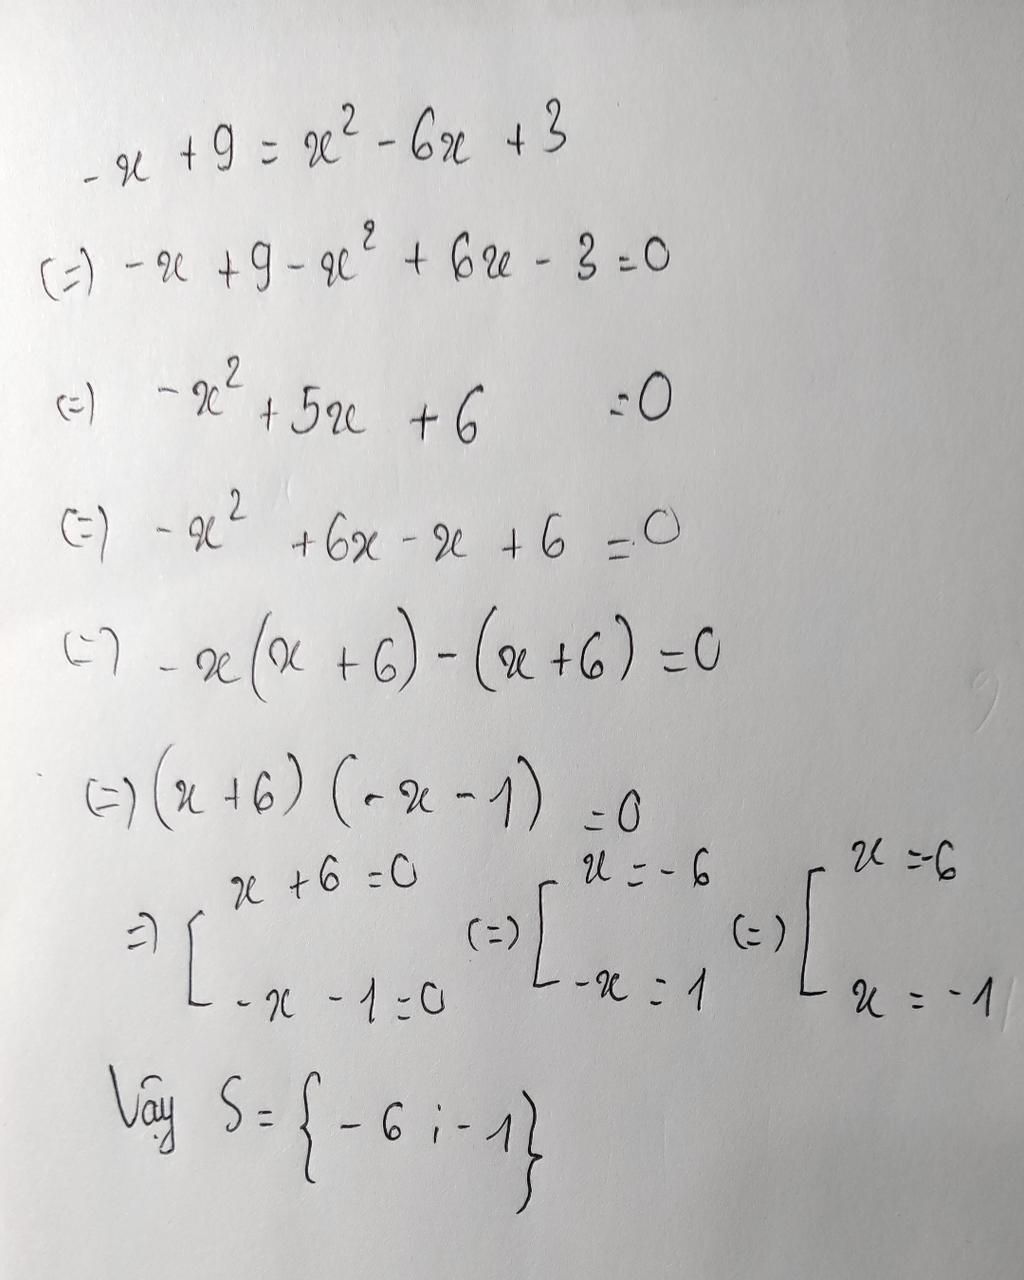 -x + 9 = x² - 6x + 3
(=) -x + 9 - x² + 6x - 3 = 0
(=) -x² + 5x + 6 = 0
(=) -x² + 6x - x + 6 = 0
(=) -x(x + 6) - (x + 6) = 0
(=) (x + 6) (-x - 1) = 0
=) [ x + 6 = 0 (=) [ x = -6 (=) [ x = -6
-x - 1 = 0 -x = 1 x = -1
Vậy S = {-6 ; -1}